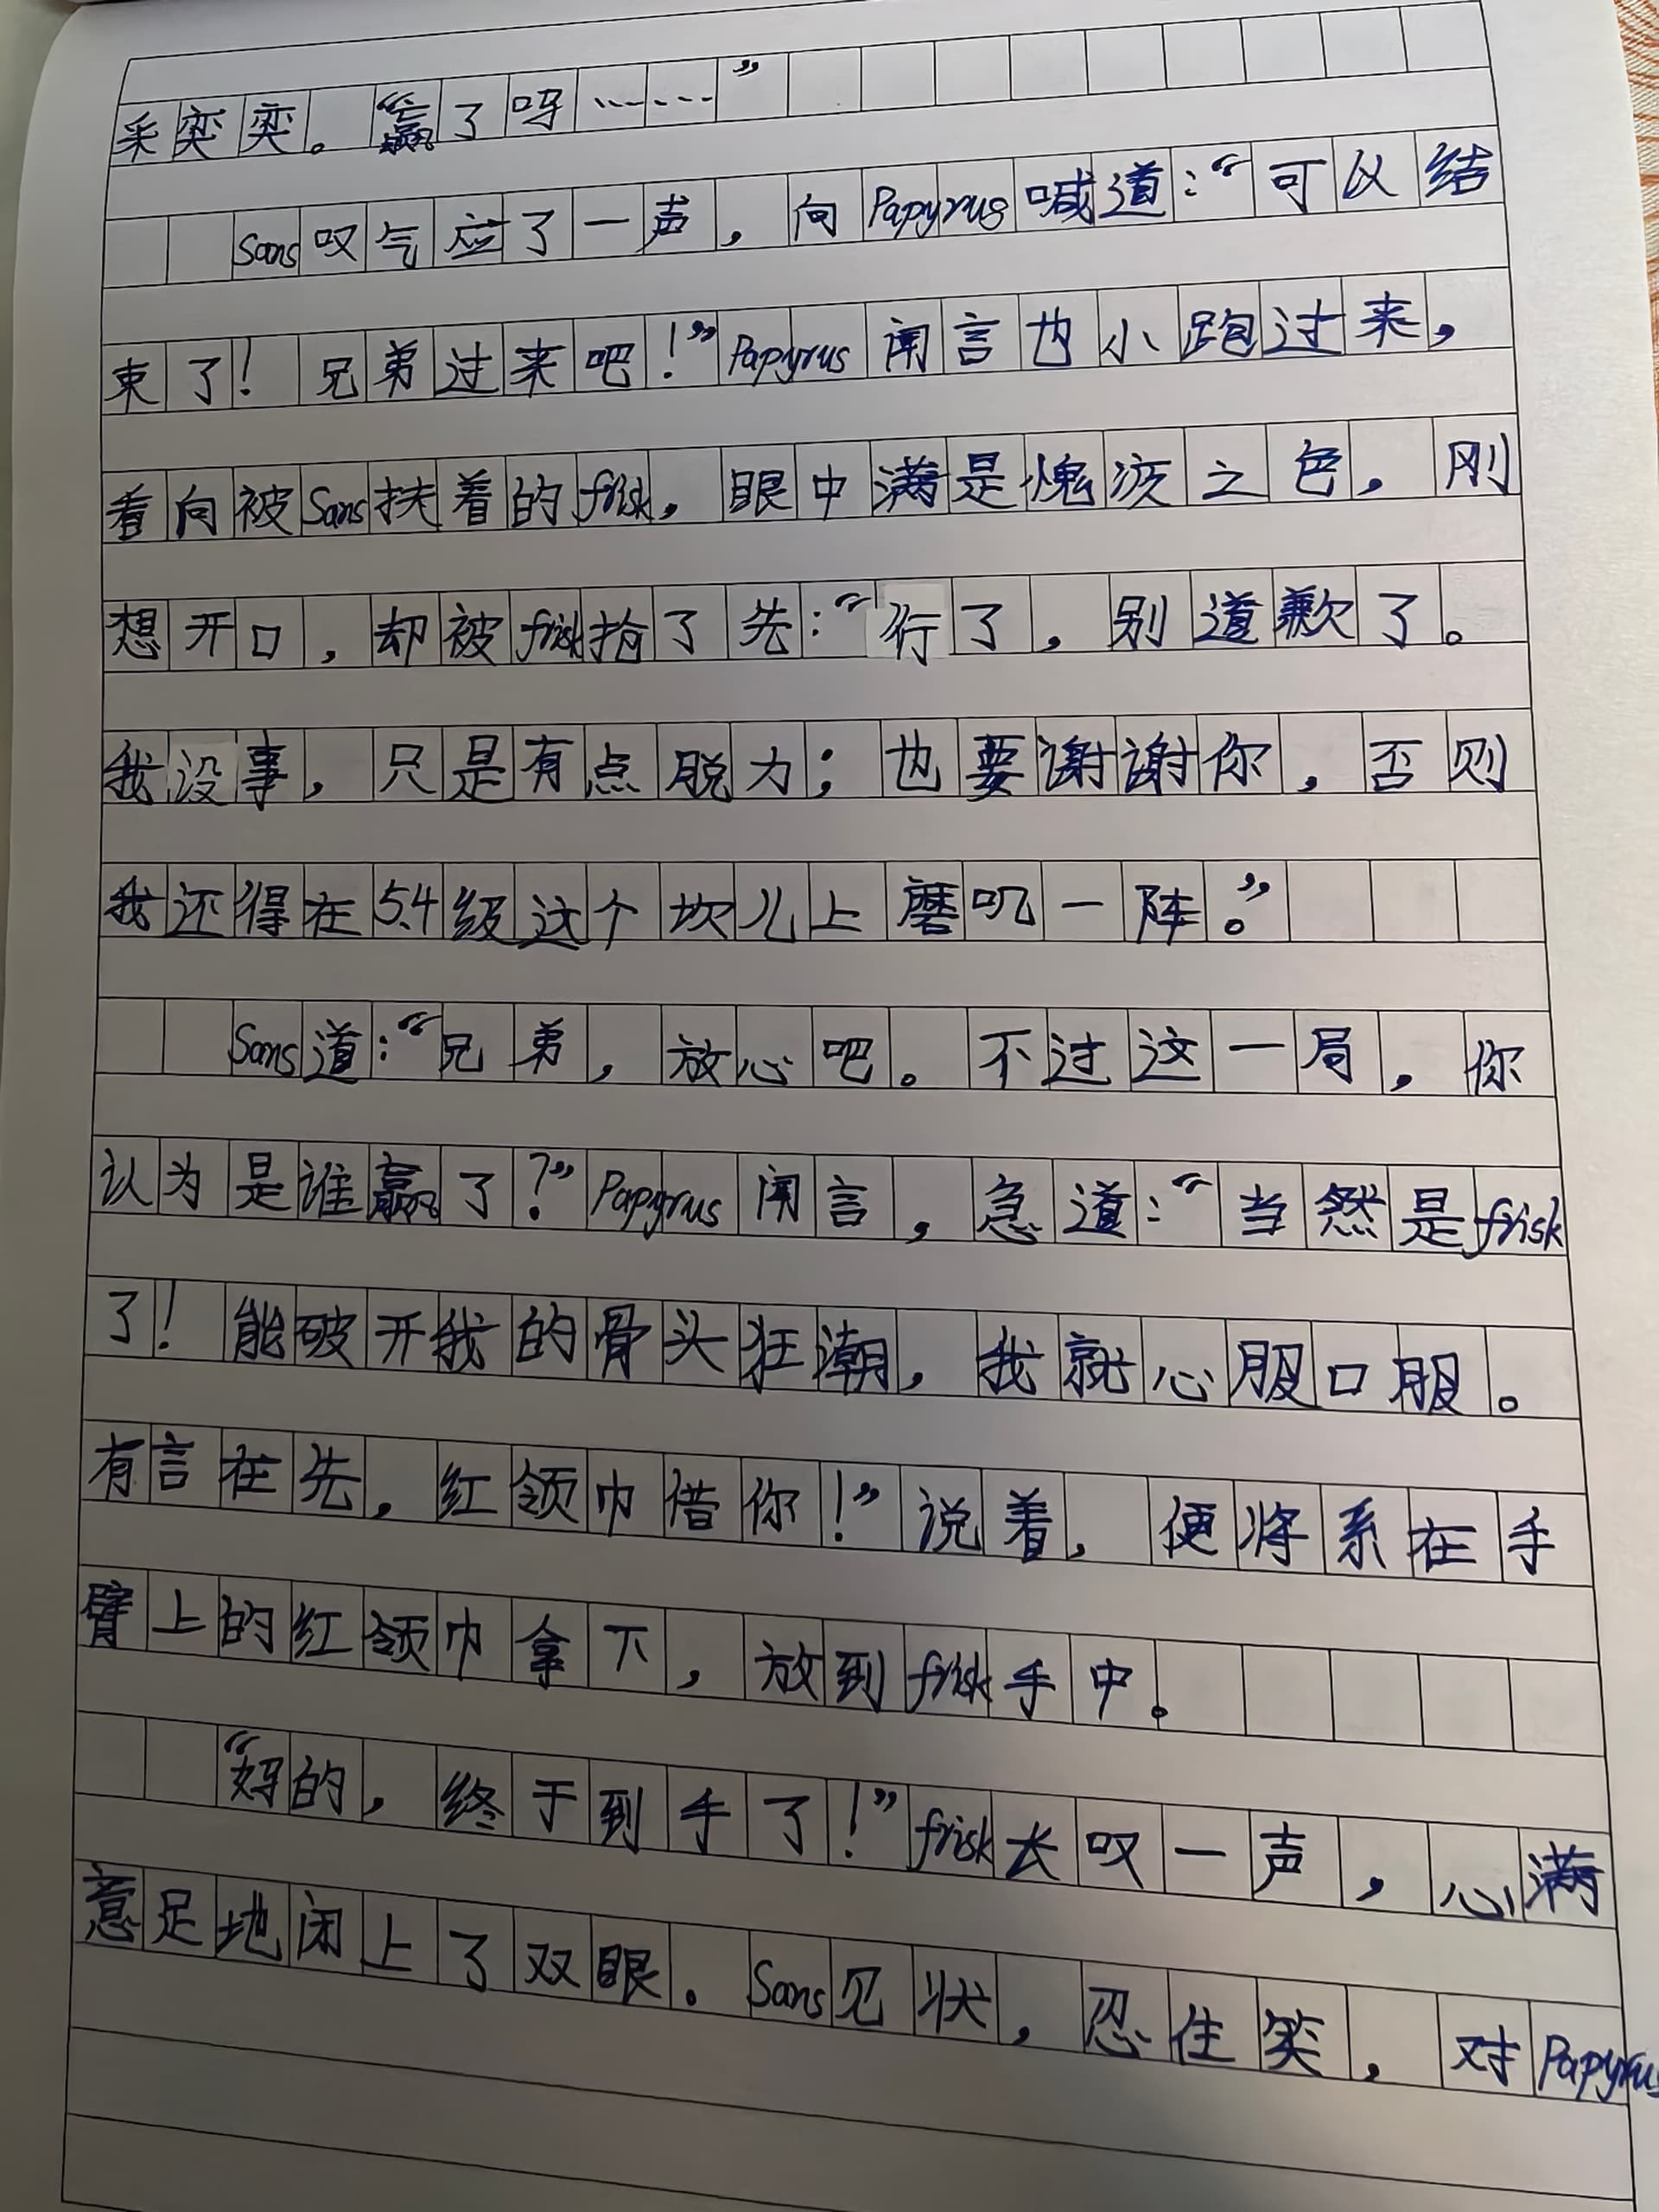 采奕奕。“赢了吗……”
Sans叹气应了一声，向Papyrus喊道：“可以结
束了！兄弟过来吧！”Papyrus闻言也小跑过来，
看向被Sans扶着的frisk，眼中满是愧疚之色，刚
想开口，却被frisk抢了先：“行了，别道歉了。
我没事，只是有点脱力；也要谢谢你，否则
我还得在5.4级这个坎儿上磨叽一阵。”
Sans道：“兄弟，放心吧。不过这一局，你
认为是谁赢了？”Papyrus闻言，急道：“当然是frisk
了！能破开我的骨头狂潮，我就心服口服。
有言在先，红领巾借你！”说着，便将系在手
臂上的红领巾拿下，放到frisk手中。
“妈的，终于到手了！”frisk长叹一声，心满
意足地闭上了双眼。Sans见状，忍住笑，对Papyrus